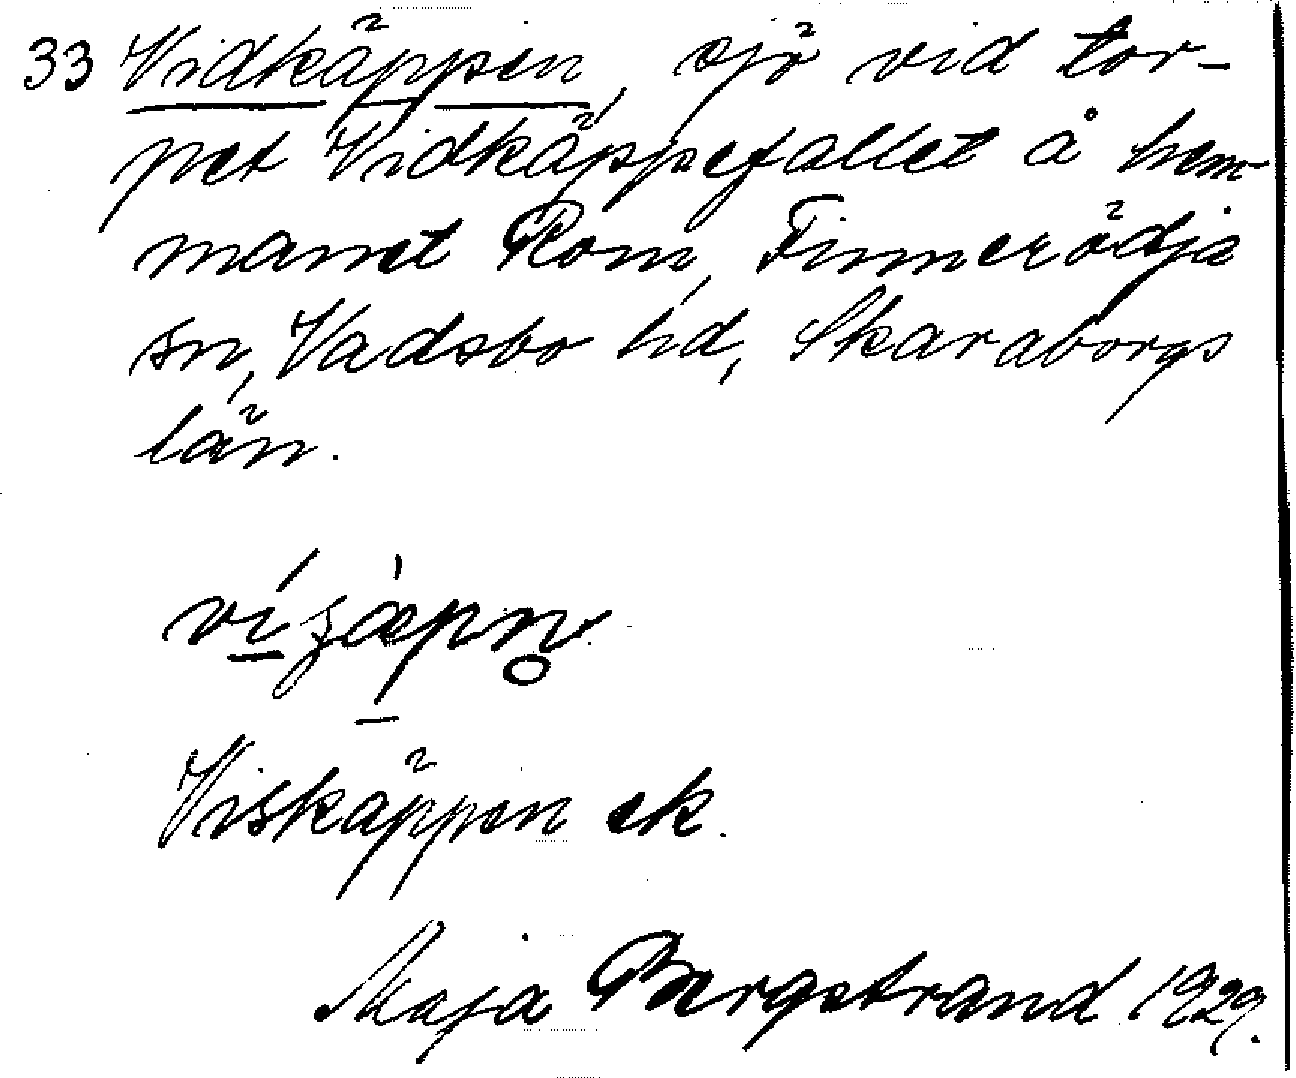 33 Vidkäppen, sjö vid tor-
pet Vidkäppefallet å hem-
manet Rom, Finnerödja
sn, Vadsbo hd, Skaraborgs
län.
Viskäppen ek.
Maja Bergstrand 1929.